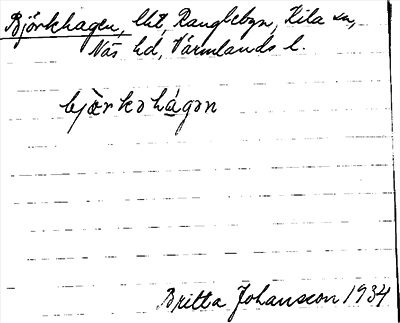 Björkhagen, lht, Ranglebyn, Kila sn,
Näs hd, Värmlands l.
bjǽrkəhágən
Britta Johansson 1934